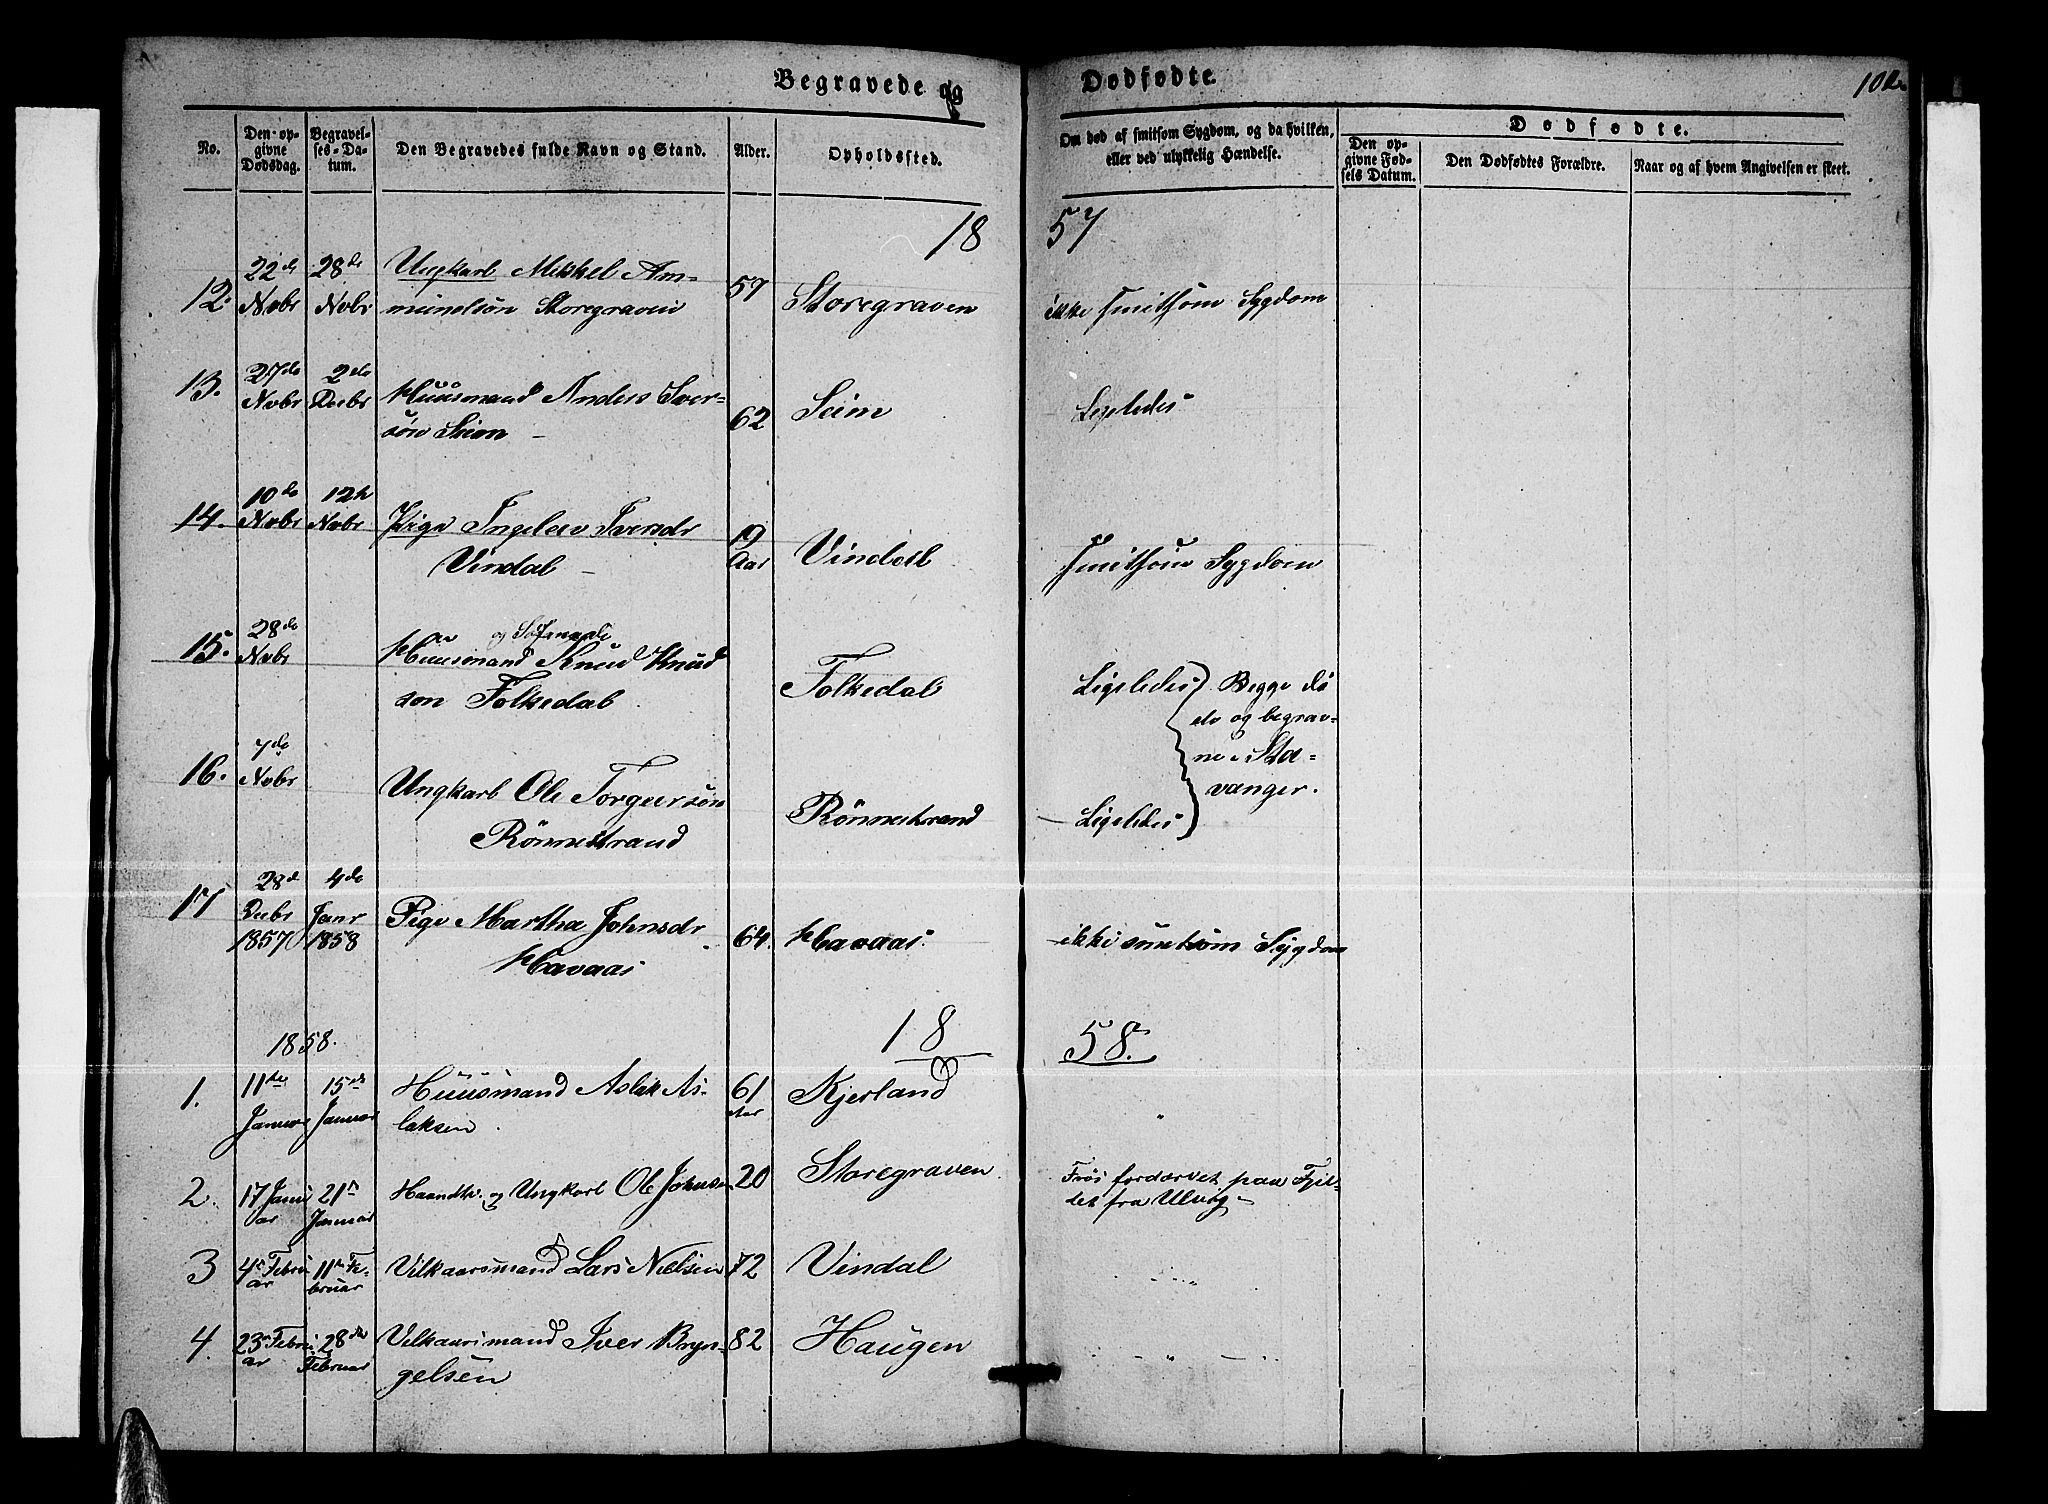 Begravede og Dødfødte.
102.
No.
Den opgivne Dødsdag.
Begravelses-Datum.
Den Begravedes fulde Navn og Stand.
Alder.
Opholdssted.
Om død af smitsom Sygdom, og da hvilken, eller ved ulykkelig Hændelse.
Dødfødte.
Den opgivne Fødsels Datum.
Den Dødfødtes Forældre.
Naar og af hvem Angivelsen er skeet.
18 57
12. 22de Novbr 28de Novbr Ungkarl Mikkel Am- 57 Storegraven ikke smitsom Sygdom
mundsøn Storegraven
13. 27de Novbr 2de Decbr Huusmand Anders Iver- 62 Seim Ligeledes
søn Seim –
14. 10de Novbr 12te Novbr Pige Ingeleiv Iversdr 19 Aar Vindal smitsom Sygdom
Vindal –
15. 28de Novbr Huusmand og Søfmand Knud Knud Folkedal Ligeledes
son Folkedal
Begge dö
de og begrav-
ne i Sta-
vanger.
16. 7de Novbr Ungkarl Ole Torgersøn Rönnestrand Ligeledes
Rönnestrand
17 28de Decbr 1857 4de Janr 1858 Pige Martha Johnsdr 64. Havaas ikke smitsom Sygdom
Havaas
1858. 18 58.
1. 11te Januar 15de Januar Huusmand Aslak As- 61 Aar Kjerland "
laksen.
2. 17 Janu ar 21de Januar Haandtv. og Ungkarl Ole Johnsen 20 Storegraven Frøs fordærvet paa Fjel-
det fra Ulvig –
3 4de Febru ar 11te Fe- bruar Vilkaarsmand Lars Nielsen 72 Vindal – " –
4. 23de Febru ar 28de Februar Vilkaarsmand Iver Bryn- 82 Haugen – " –
gelsen